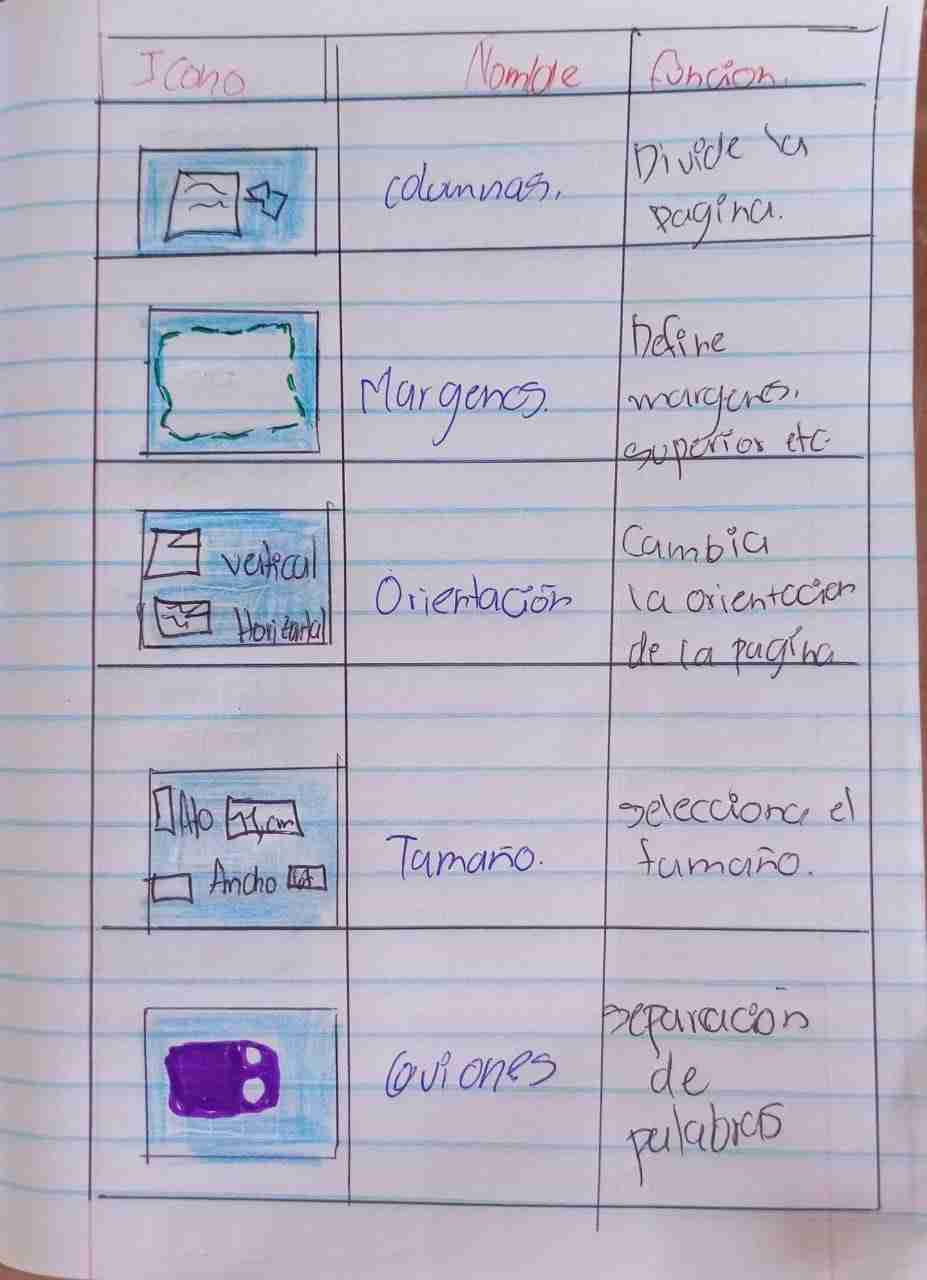 Icono
Nombre
funcion.
columnas.
Divide la
pagina.
Margenes.
Define
margenes.
superior etc.
Vertical
Horizontal
Orientación
Cambia
la orientccion
de la pagina
Alto
cm
Ancho
Tamaño.
selecciona el
tamaño.
Guiones
separación
de
palabras